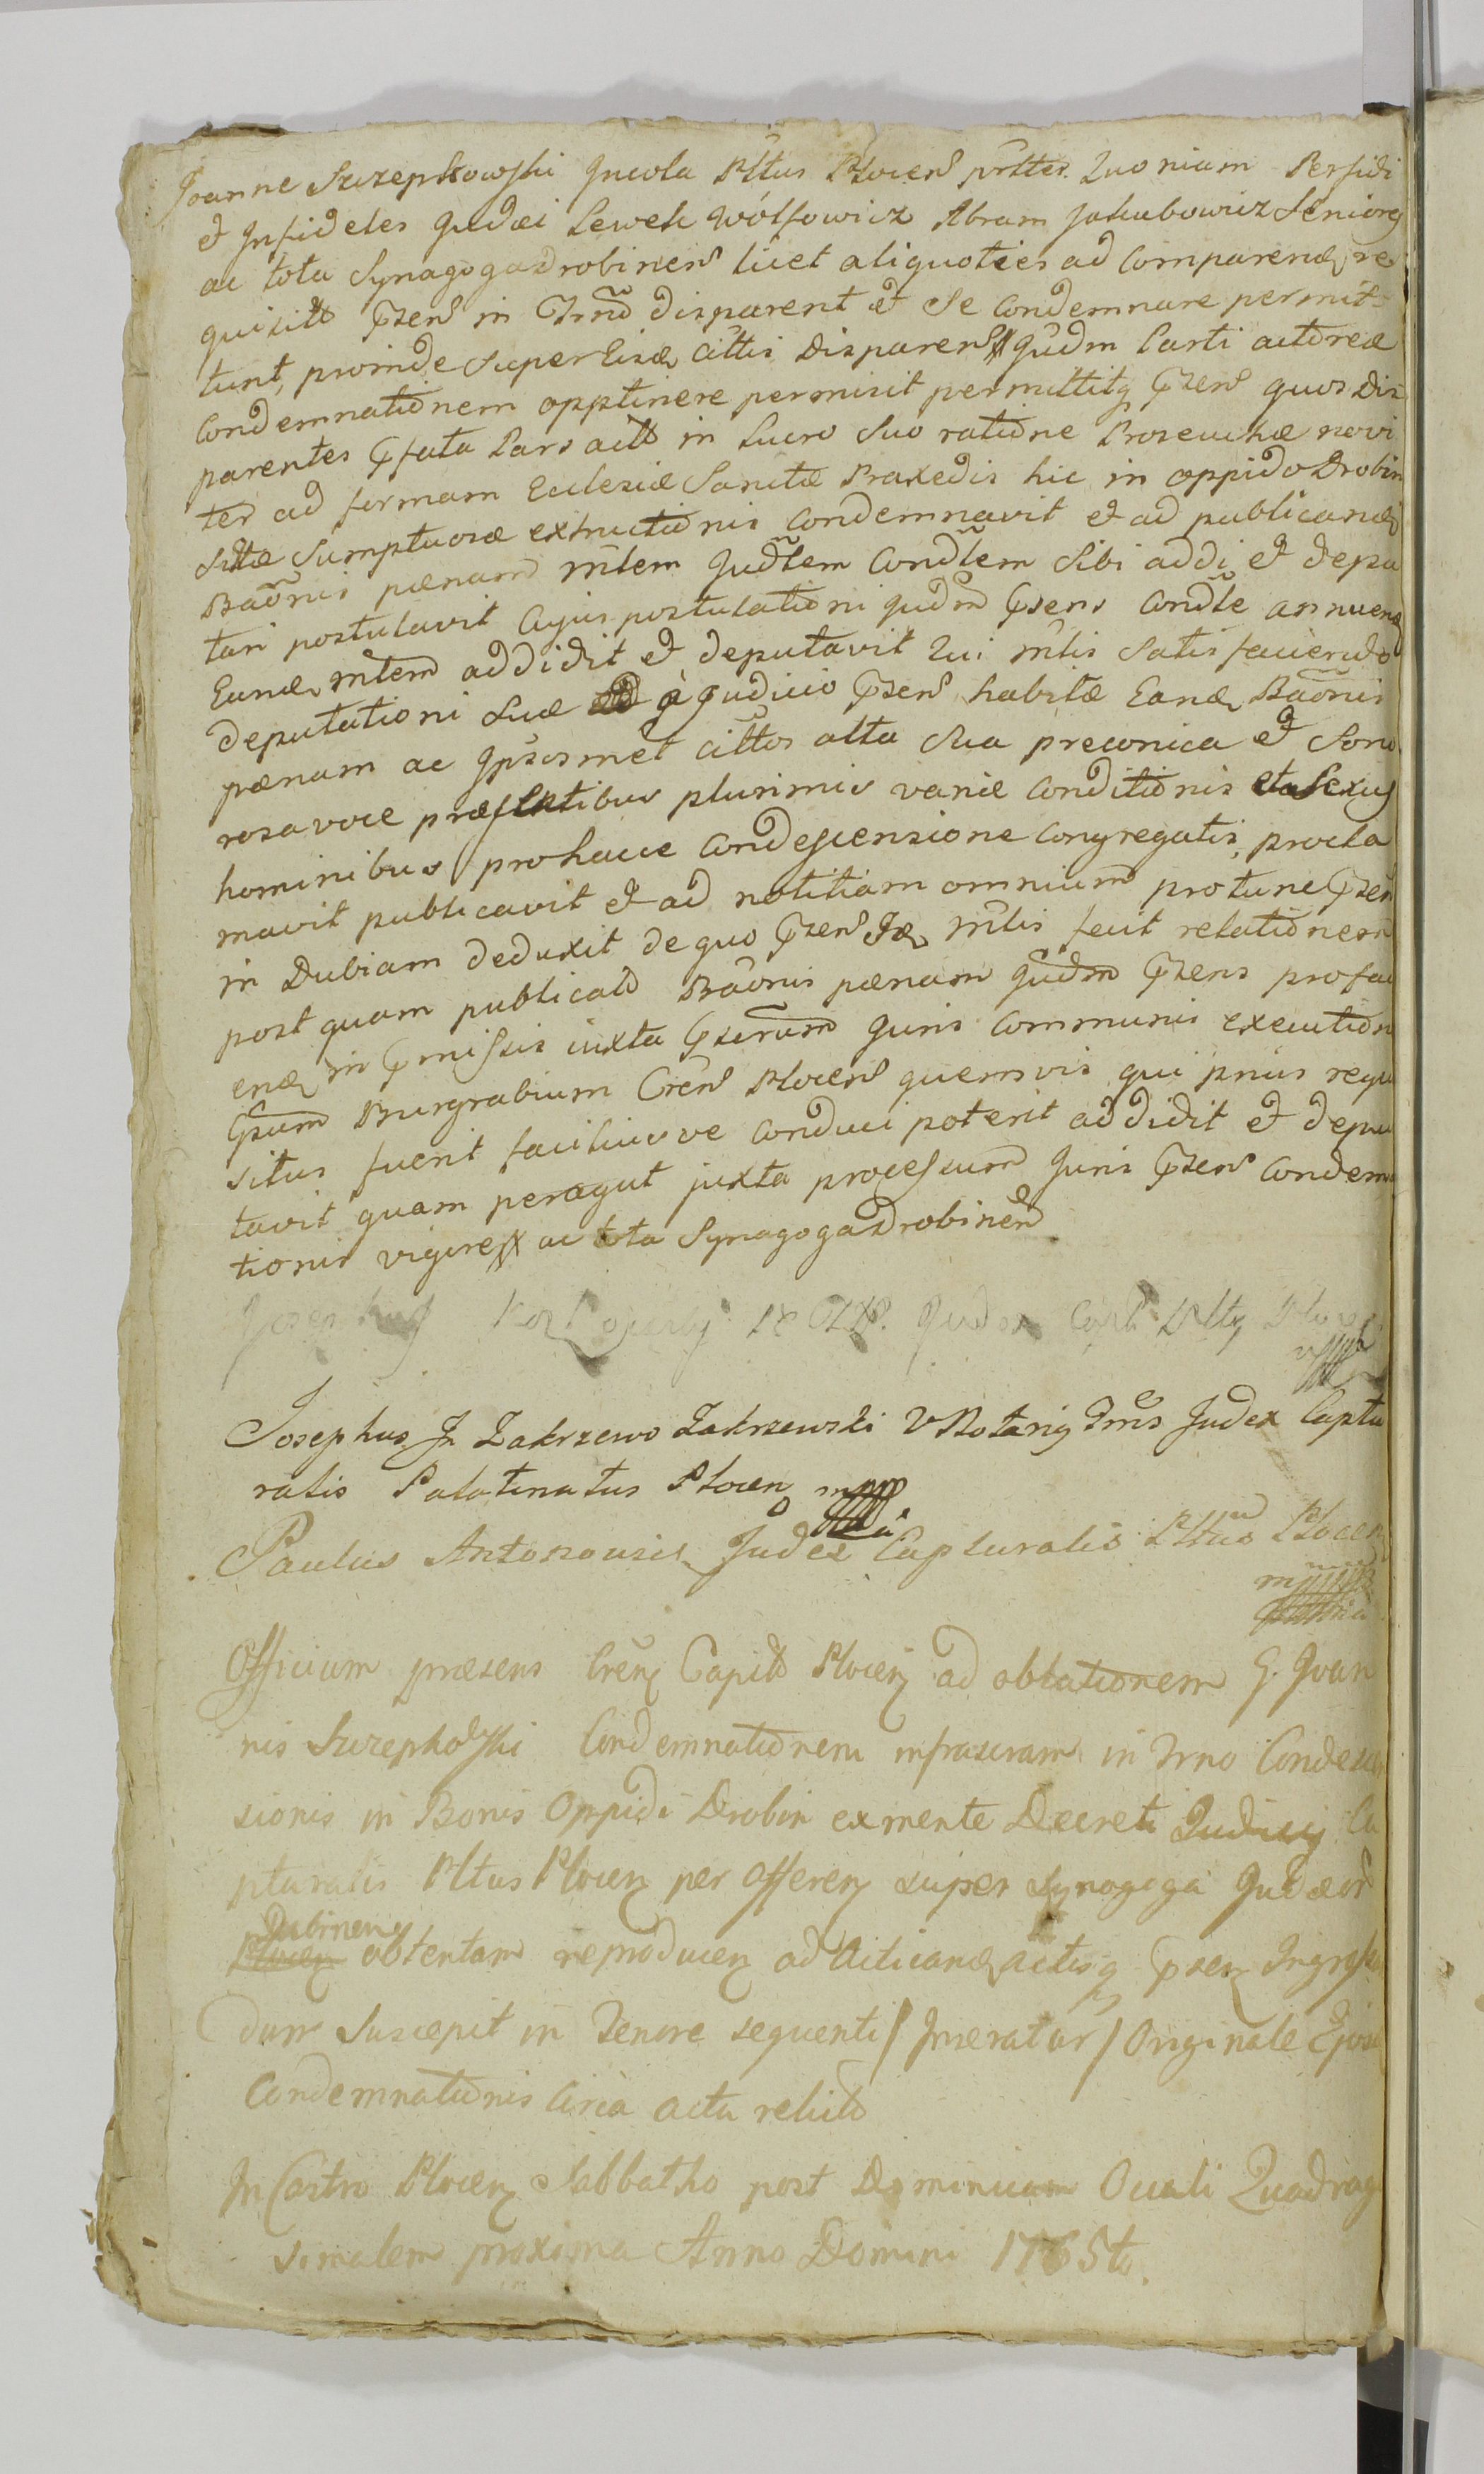 Joanne Szczepkowski Incola Pltus Plocen prlter. Quoniam Perfidi
et Infideles Judæi Lewek Wólfowicz Abram Jakubowicz Seniores
ac tota Synagoga Drobinen licet aliquoties ad Comparend re
quisit Prsen in Trno disparent et se Condemnare permit
tunt, proinde super Eisd Cittis Disparen Judm Parti actoreæ
Condemnationem opptinere permisit permittitq Prsen quos Dis
parentes Prfata Pars act in Lucro suo ratione Proseuchæ novi
ter ad formam Ecclesiæ Sanctæ Praxedis hic in oppido Drobin
sitæ sumptuosæ extructionis Condemnavit et ad publicand
Baonis pænam mlem Judlem Condlem sibi addi et depu
tari postulavit Cujus postulationi Judm Prsens Condle annuend
Eund mlem addidit et deputavit Qui mlis satis faciendo
deputationi suæ à Judicio Prsen habitæ Eand Baonis
pænam ac Ipsosmet cittos alta sua preconica et sono
rosa voce præsentibus plurimis variæ Conditionis et Sexus
hominibus pro hacce Condescensione Congregatis, procla
mavit publicavit et ad notitiam omnium pro tunc Prsen
in Dubiam deduxit de quo Prsen Id mlis fecit relationem
post quam publicat Baonis pænam Judm Prsens pro faci
end in Prmissis iuxta Prscrum Juris Communis executionem
Prsum Burgrabium Cren Plocen quemvis qui prius requi
situs fuerit faciliusve Conduci poterit addidit et depu
tavit quam peragut juxta processum Juris Prsen Condemna
tionis vigore ac tota Synagoga Drobinen
Josephus Judex Capt Pltq Plocen
Josephus In Zakrzewo Zakrzewski VNotariq Trris Judex Captu
ralis Palatinatus Plocen mpp
Paulus Antonowicz Judex Capturalis Pltus Plocen
mpp
Officium præsens Cren Capit Plocen ad oblationem G. Joan
nis Szczepkowski Condemnationem infrascram in Trno Condescen
sionis in Bonis Oppidi Drobin ex mente Decreti Judicij Ca
pturalis Pltus Plocen per Offeren super Synagoga Judæor
Drobinen
Plocen obtentam reproducen ad Acticand actisq Prsen Ingrossan
dum Suscepit in Tenore sequenti / Inseratur / Originale Ejusd
Condemnationis Circa acta relict
In Castro Plocen Sabbatho post Dominicam Oculi Quadrage
simalem proxima Anno Domini 1765to